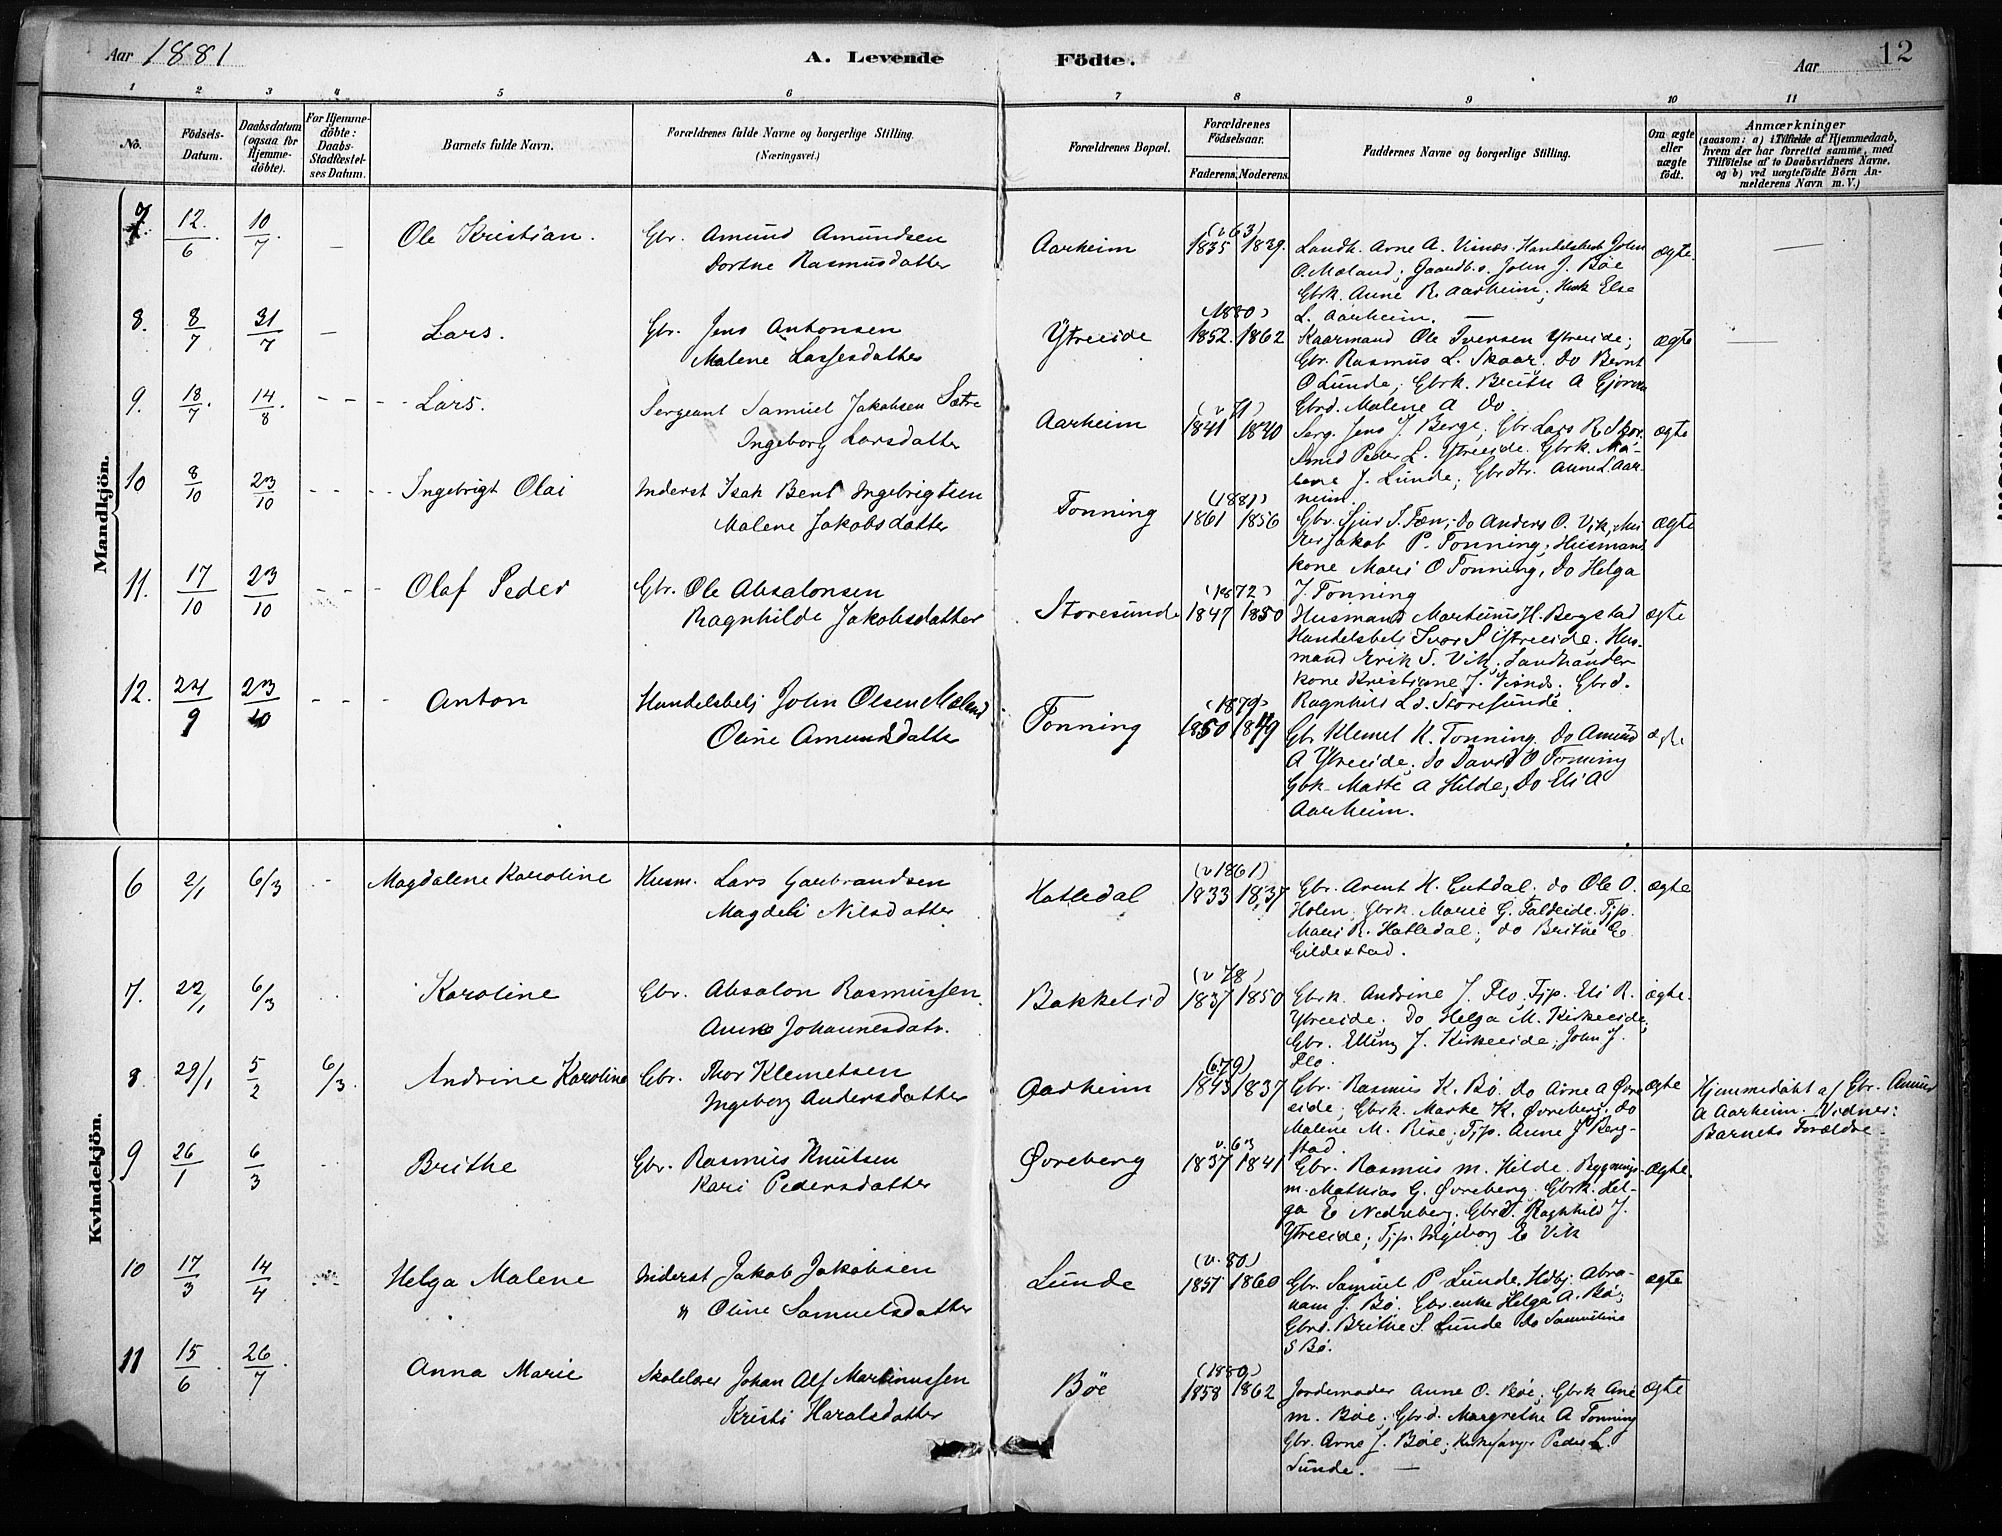 Aar 1881
A. Levende Fødte.
Aar
12
1 2 3 4 5 6 7 8 9 10 11
No.
Födsels-Datum.
Daabsdatum (ogsaa for Hjemmedöbte).
For Hjemmedöbte: Daabs-Stadfæstelses Datum.
Barnets fulde Navn.
Forældrenes fulde Navne og borgerlige Stilling. (Næringsvei.)
Forældrenes Bopæl.
Forældrenes Födselsaar. Faderens. Moderens.
Faddernes Navne og borgerlige Stilling.
Om ægte eller uægte födt.
Anmærkninger (saasom: a) i Tilfælde af Hjemmedaab, hvem der har forrettet samme, med Tilföielse af to Daabsvidners Navne. og b) ved uægtefödte Börn Anmelderens Navn m. V.)
Mandkjön.
7. 12/6 10/7 — Ole Kristian. Gbr. Amund Amundsen
Dorthe Rasmusdatter
Aarheim (v 63) 1835 1839.
Landh. Arne A. Visnes. Handelsbetj John
O. Mæland; Gaardb.s. John J. Böe
Gbrk. Anne R. Aarheim; Husk Else
L. Aarheim. —
ægte. —
8. 8/7 31/7 — Lars. Gbr. Jens Antonsen
Malene Lassesdatter
Ytreeide (1880) 1852. 1862
Kaarmand Ole Iversen Ytreeide;
Gbr. Rasmus L. Skaar. do Bernt
O Lunde; Gbrk. Brithe A Gjerven
Gbrd. Malene A do.
ægte —
9. 18/7 14/8 - - - Lars. Sergeant Samuel Jakobsen Sætre
Ingeborg Larsdatter
Aarheim (v 71) 1841 1840
Serg. Jens J. Berge; Gbr Lars R. Skor.
Smed Peder L. Ytreeide. Gbrk. Ma-
lene J. Lunde; Gbrdtr. Anne L Aar-
heim.
ægte
10 8/10 23/10 - - - Ingebrigt Olai Inderst Isak Bent Ingebrigtsen
Malene Jakobsdatter
Tonning (1881) 1861 1856
Gbr. Sjur S. Fæn; do Anders O. Vik, Mu
rer Jakob P. Tonning; Husmands
kone Mari O Tonning, do Helga
J. Tonning
ægte
11. 17/10 23/10 - - - Olaf Peder Gbr. Ole Absalonsen
Ragnhilde Jakobsdatter
Storesunde (1872) 1847 1850
Husmand Martinus H. Bergstad
Handelsbetj Ivar S Ytreeide. Hus-
mand Erik S. Vik; Landhandler
kone Kristiane J. Visnes. Gbrd.
Ragnhild L d. Storesunde.
ægte
12. 24/9 23/10 - - Anton Handelsbetj John Olsen Mæland
Oline Amundsdatter
Tonning (1879) 1850 1849
Gbr Klemet K. Tonning. do Amund
A Ytreeide; do David O Tonning
Gbk Marte A Hilde; do Eli A
Aarheim.
ægte
Kvindekjön.
6 2/1 6/3 - Magdalene Karoline Husm. Lars Garbrandsen
Magdeli Nilsdatter
Hatledal (v 1861) 1833 1837
Gbr. Arent H. Gutdal. do Ole O.
Holen; Gbrk. Marie G. Faldeide. Tjp.
Mari R. Hatledal; do Brithe E
Gildestad.
ægte
7. 22/1 6/3 Karoline Gbr. Absalon Rasmussen
Anne Johannesdatr.
Bakkelid (v 78) 1837 1850
Gbrk. Andrine J. Flo; Tjp. Eli R.
Ytreeide. do Helga M. Kirkeeide;
Gbr. Elling J. Kirkeeide; John J.
Flo.
ægte.
8. 29/1 5/2 6/3. Andrine Karoline Gbr. Thor Klemetsen
Ingeborg Andersdatter
Aarheim 1843 1837
Gbr. Rasmus K. Bö. do Arne A Øvre
eide; Gbrk. Marke K. Øvreberg. do
Malene M. Rise; Tjp. Anne J Berg-
stad.
ægte
Hjemmedöbt af Gbr. Amund
A Aarheim. Vidner:
Barnets Forældre.
9 26/1 6/3 - Brithe Gbr. Rasmus Knutsen
Kari Pedersdatter
Øvreberg v. 63 1837 1841
Gbr. Rasmus M. Hilde. Bygnings-
m. Mathias G. Øvreberg. Gbrk. Hel-
ga E Nedreberg. Gbrd. Ragnhild J.
Ytreeide; Tjp. Ingeborg E Vik
ægte.
10 17/3 14/4 Helga Malene Inderst Jakob Jakobsen
" Oline Samuelsdatter
Lunde (v. 80) 1851 1860
Gbr. Samuel P Lunde. Hdbj. Abra-
ham J. Bö. Gbr.enke Helga A. Bö;
Gbrd. Brithe S. Lunde do Samueline
S Bö.
ægte
11 15/6. 26/7. Anna Marie Skolelærer Johan Alf Martinussen
Kristi Haraldsdatter
Böe (1880) 1858 1862
Jordemoder Anne O. Böe; Gbrk Ane
M. Böe; Gbrd. Margrethe A Tonning
Gbr. Arne J. Böe; Kirkesanger Peder L.
Lunde. —
ægte